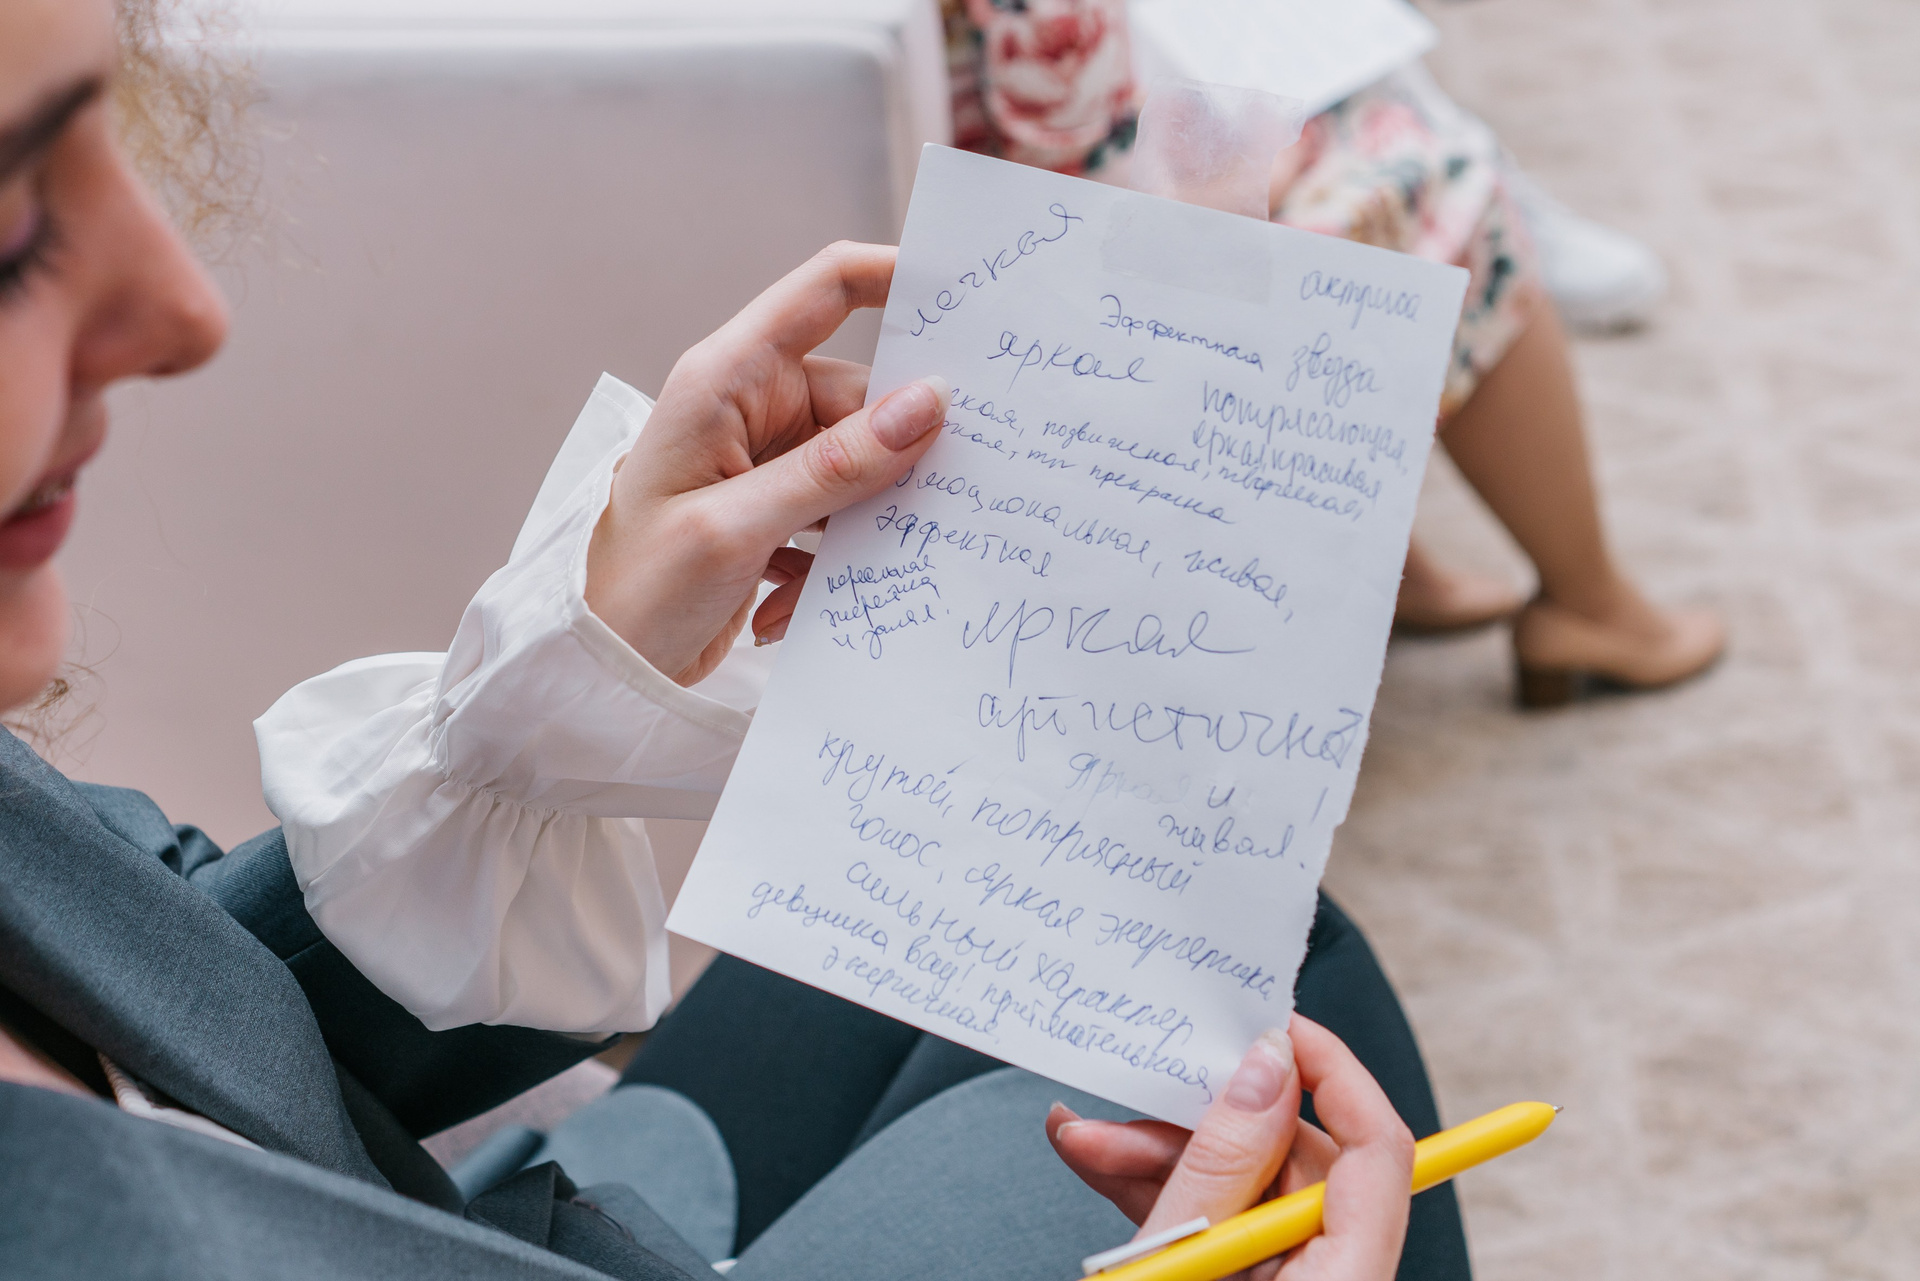 легкая
актриса
Эффектная звезда
яркая
потрясающая,
яркая, красивая
подвижная, творческая,
ты прекрасна
Эмоциональная, живая,
эффектная
нереальная
энергетика
и запал.
яркая
артистична
Яркая и
живая!
крутой, потрясный
голос, яркая энергетика
сильный характер
девушка вау! притягательная,
энергичная